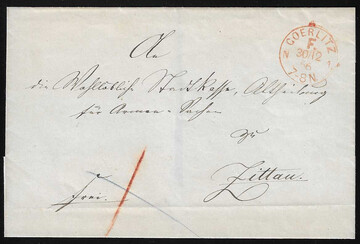 GOERLITZ
F
30 12
7-8 N
An
die Wohllöbliche Stadtkasse, Abtheilung
für Armen-Sachen
zu
Zittau.
frei.